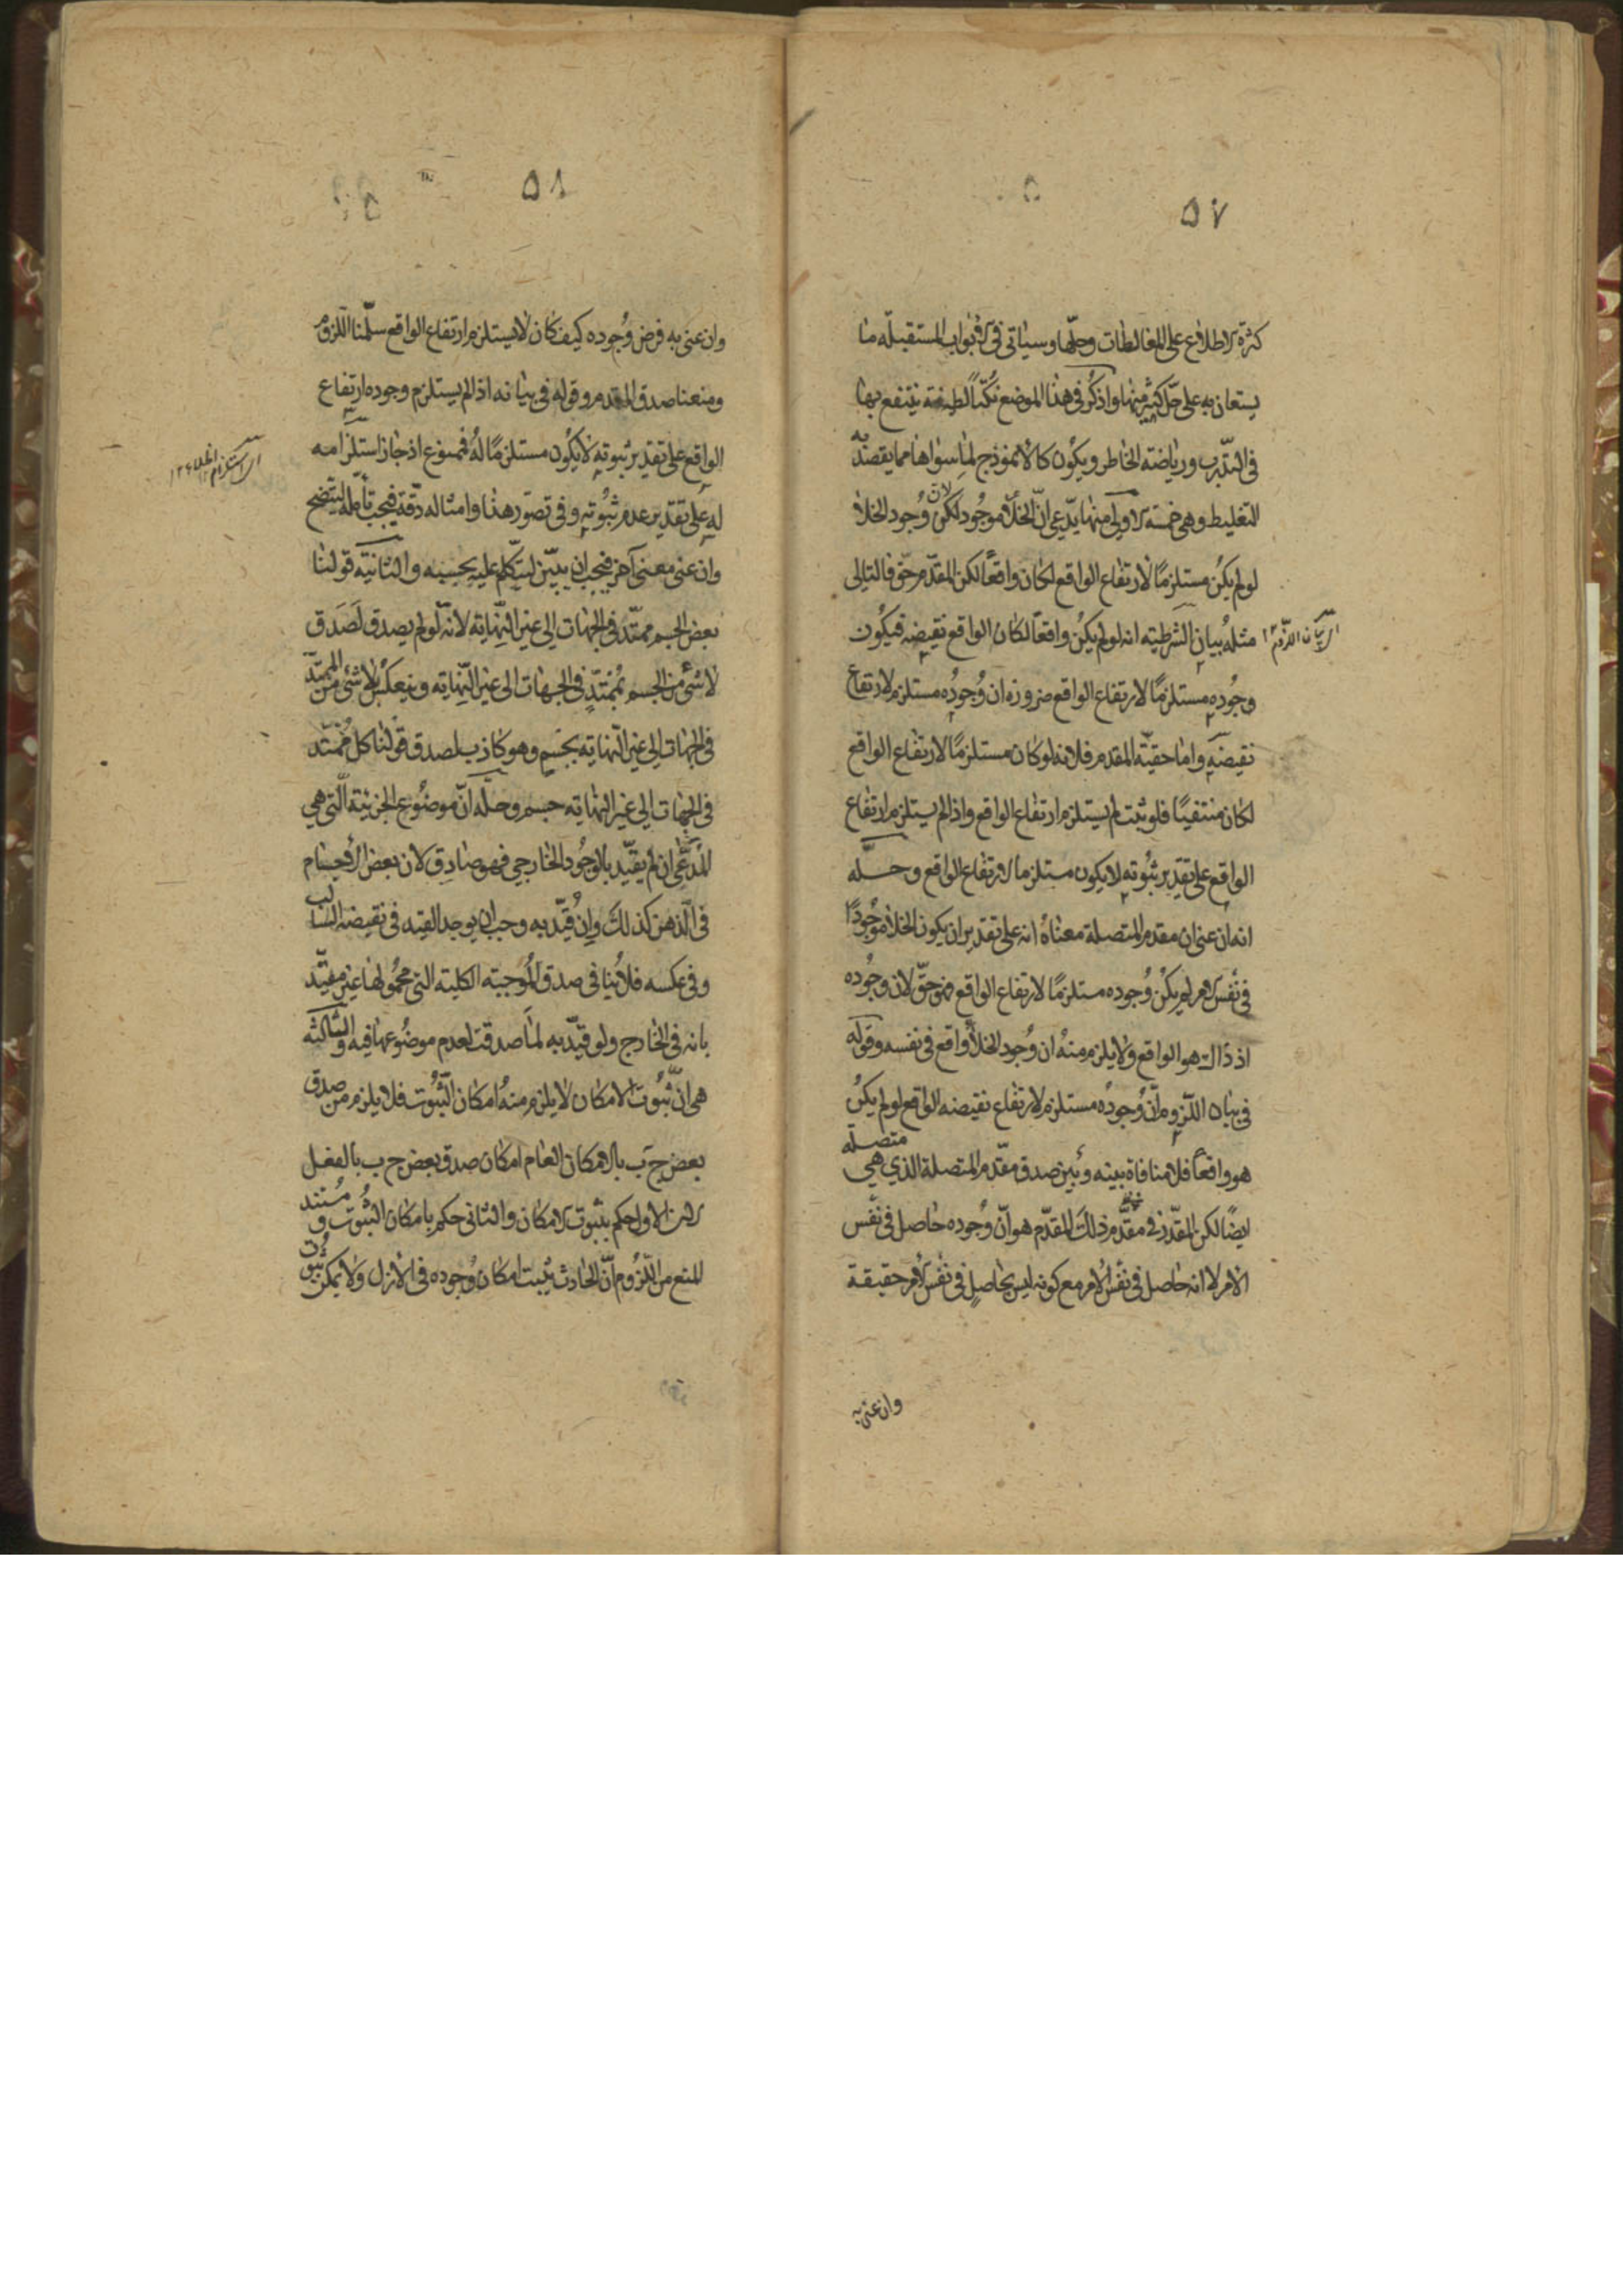 ٥٧
كثرة الاطلاع على المغالطات وحلّها وسياتى فى الابواب المستقبلة ما
يستعان به على حلّ كثير منها واذكر فى هذا الموضع نكتًا لطيفة ينتفع بها
فى التدّرب ورياضة الخاطر ويكون كالانموذج لما سواها مما يقصد به
التغليط وهى خمسة الاولى منها يدّعى انّ الخلأ موجود لان وجود الخلأ
لو لم يكن مستلزمًا لارتفاع الواقع لكان واقعًا لكن المقدّم حقّ فالتالى
مثله بيان الشرطية انه لو لم يكن واقعًا لكان الواقع نقيضه فيكون
اى بيان اللزوم ١٢
وجوده مستلزمًا لارتفاع الواقع ضرورة ان وجوده مستلزم لارتفاع
نقيضه واما حقيّة المقدم فلانه لو كان مستلزمًا لارتفاع الواقع
لكان منتفيًا فلو ثبت لم يستلزم ارتفاع الواقع واذا لم يستلزم ارتفاع
الواقع على تقدير ثبوته لا يكون مستلزما لارتفاع الواقع وحلّه
انه ان عنى ان مقدم المتصلة معناه انه على تقدير ان يكون الخلأ موجودًا
فى نفس الامر لم يكن وجوده مستلزمًا لارتفاع الواقع فهو حقّ لان وجوده
اذ ذاك هو الواقع ولا يلزم منه ان وجود الخلأ واقع فى نفسه وقوله
فى بيان اللزوم انّ وجوده مستلزم لارتفاع نقيضه الواقع لو لم يكن
هو واقعًا فلا منافاة بينه وبين صدق مقدّم المتصلة الذي هي متصلة
ايضًا لكن المقدّر فى مقدّم ذلك المقدّم هو انّ وجوده حاصل فى نفس
الامر لا انه حاصل فى نفس الامر مع كونه ليس بحاصل فى نفس الامر حقيقة
وان عنى به
٥٨
وان عنى به فرض وجوده كيف كان لا يستلزم ارتفاع الواقع سلّمنا اللزوم
ومنعنا صدق المقدم وقوله فى بيانه اذا لم يستلزم وجوده ارتفاع
الواقع على تقدير ثبوته لا يكون مستلزمًا له فممنوع اذ جاز استلزامه
له على تقدير عدم ثبوته وفى تصوّر هذا وامثاله دقّة فيجب تأمّله ليتضح
وان عنى معنى آخر فيجب ان يبيّن ليتكلّم عليه بحسبه والثانية قولنا
بعض الجسم ممتدّ فى الجهات الى غير النّهاية لانّه لو لم يصدق لَصَدَق
لا شئ من الجسم بممتدّ فى الجهات الى غير النّهاية وينعكس بلا شئ من الممتدّ
فى الجهات الى غير النّهاية بجسم وهو كاذب لصدق قولنا كل ممتدّ
فى الجهات الى غير النّهاية جسم وحلّه انّ موضوع الجزئيّة الّتى هى
المدّعى ان لم يقيّد بالوجود الخارجى فهو صادق لان بعض الاجسام
فى الذهن كذلك وان قيّد به وجب ان يوجد القيد فى نقيضه السالب
وفى عكسه فلا ينافى صدق الموجبة الكلية التى محمولها غير مقيّد
بانه فى الخارج ولو قيّد به لما صدقت لعدم موضوعها فيه والثالثة
هى انّ ثبوت الامكان لا يلزم منه امكان الثبوت فلا يلزم من صدق
بعض ج ب بالامكان العام امكان صدق بعض ج ب بالفعل
لان الاول حكم بثبوت الامكان والثانى حكم بامكان الثبوت ومُستند
المنع من اللزوم انّ الحادث يثبت امكان وجوده فى الازل ولا يمكن ثبوت